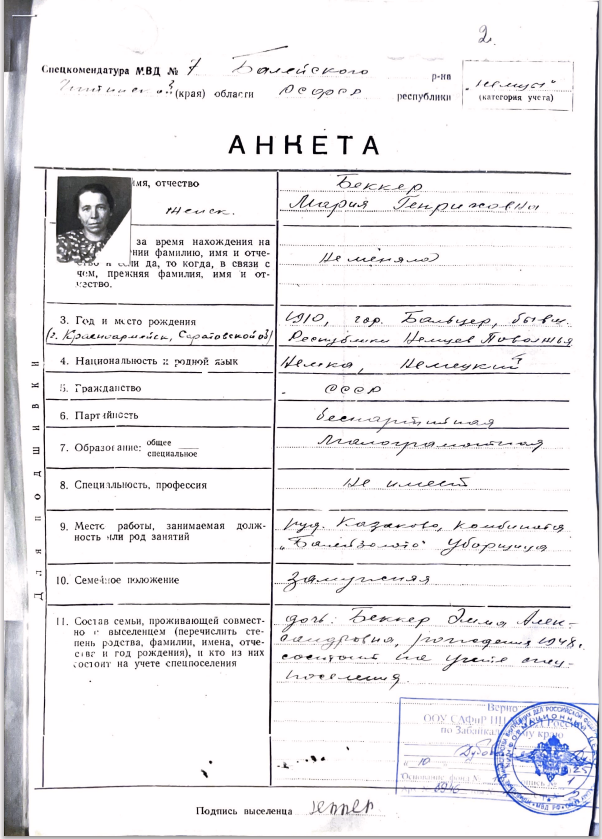 2.
Спецкомендатура МВД № 7 Балейского р-на
Читинской (края) области РСФСР республики
„Немцы"
(категория учета)
АНКЕТА
имя, отчество
женск.
Беккер
Мария Генриховна
за время нахождения на
нии фамилию, имя и отче-
ство и если да, то когда, в связи с
чем, прежняя фамилия, имя и от-
чество.
Не меняла
3. Год и место рождения
(г. Красноармейск, Саратовской об)
1910, гор. Бальцер, бывш.
Республики Немцев Поволжья
4. Национальность и родной язык
Немка, Немецкий
5. Гражданство
СССР
6. Партийность
беспартийная
7. Образование: общее
специальное
Малограмотная
8. Специальность, профессия
Не имеет
9. Место работы, занимаемая долж-
ность или род занятий
руд. Казаково, комбината
„Балейзолото" Уборщица
10. Семейное положение
Замужняя
11. Состав семьи, проживающей совмест-
но с выселенцем (перечислить сте-
пень родства, фамилии, имена, отче-
ства и год рождения), и кто из них
состоит на учете спецпоселения
дочь: Беккер Эмма Алек-
сандровна, рождения 1948,
состоит на учете спец-
поселения.
Для подшивки
Верно
по Забайкальскому краю
10
Подпись выселенца